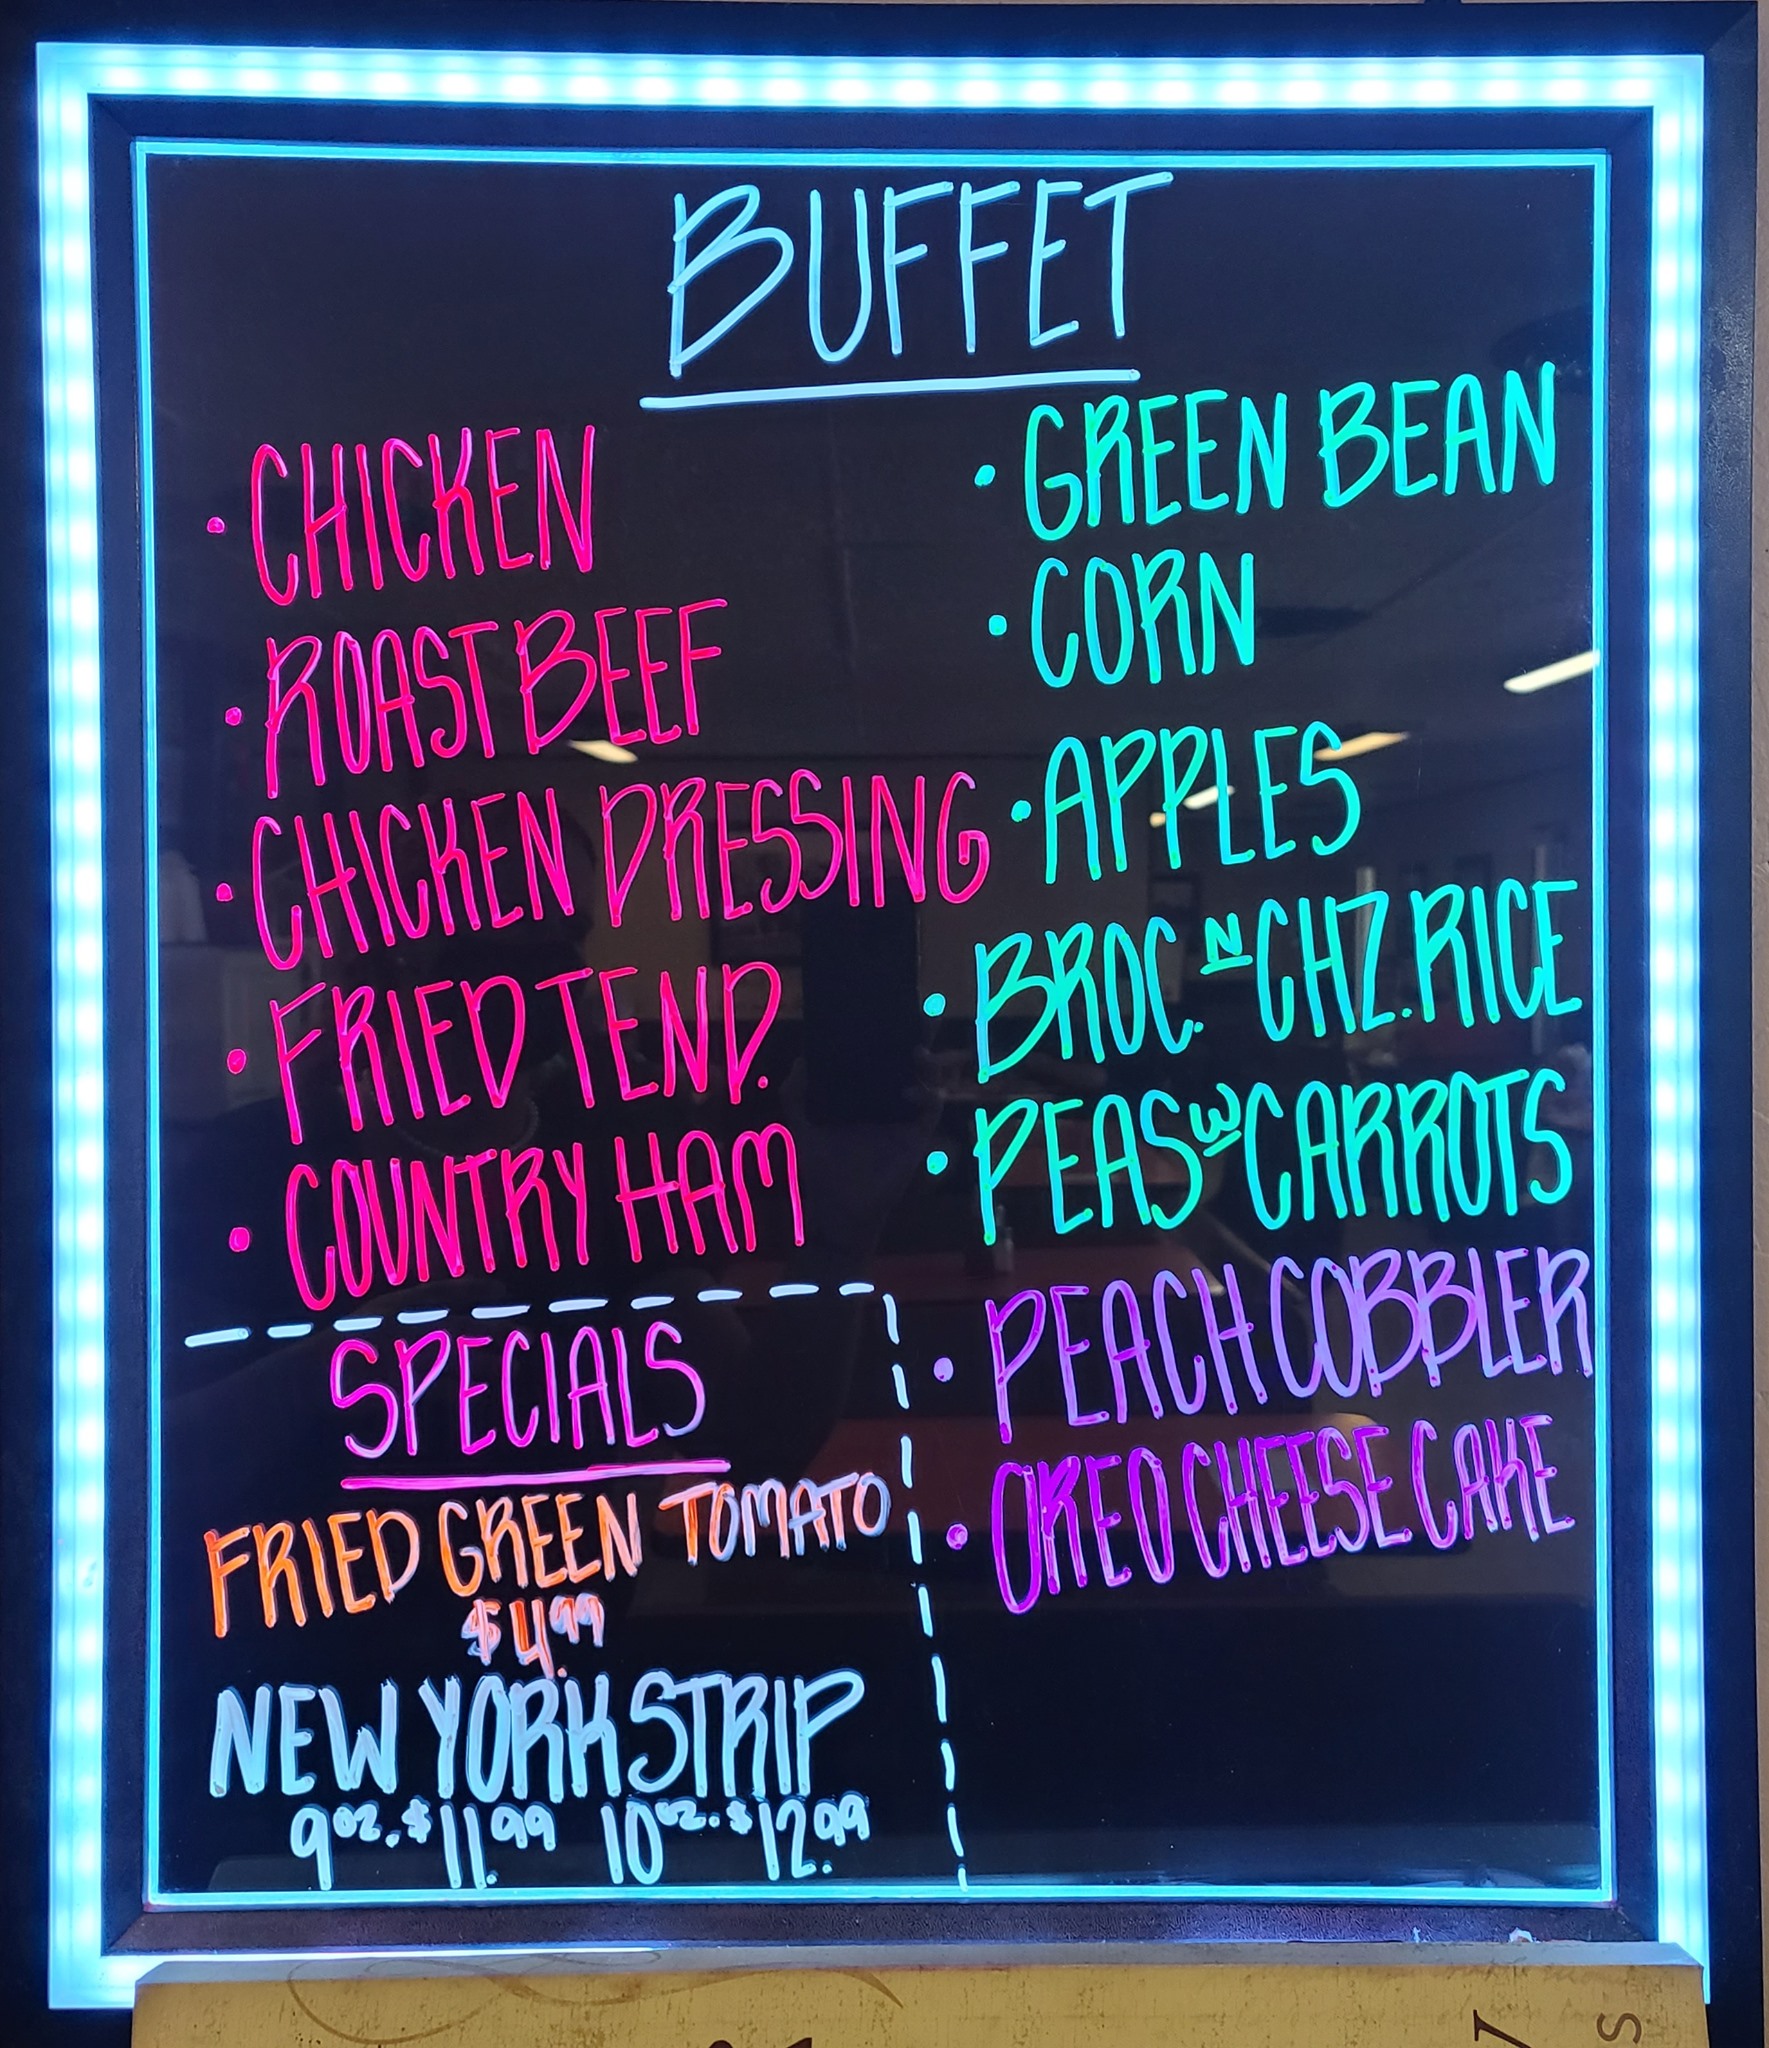 BUFFET
• CHICKEN
• ROAST BEEF
• CHICKEN DRESSING
• FRIED TEND.
• COUNTRY HAM
SPECIALS
FRIED GREEN TOMATO
$4.99
NEW YORK STRIP
9oz. $11.99 10oz. $12.99
• GREEN BEAN
• CORN
• APPLES
• BROC. N CHZ. RICE
• PEAS W CARROTS
• PEACH COBBLER
• OREO CHEESE CAKE